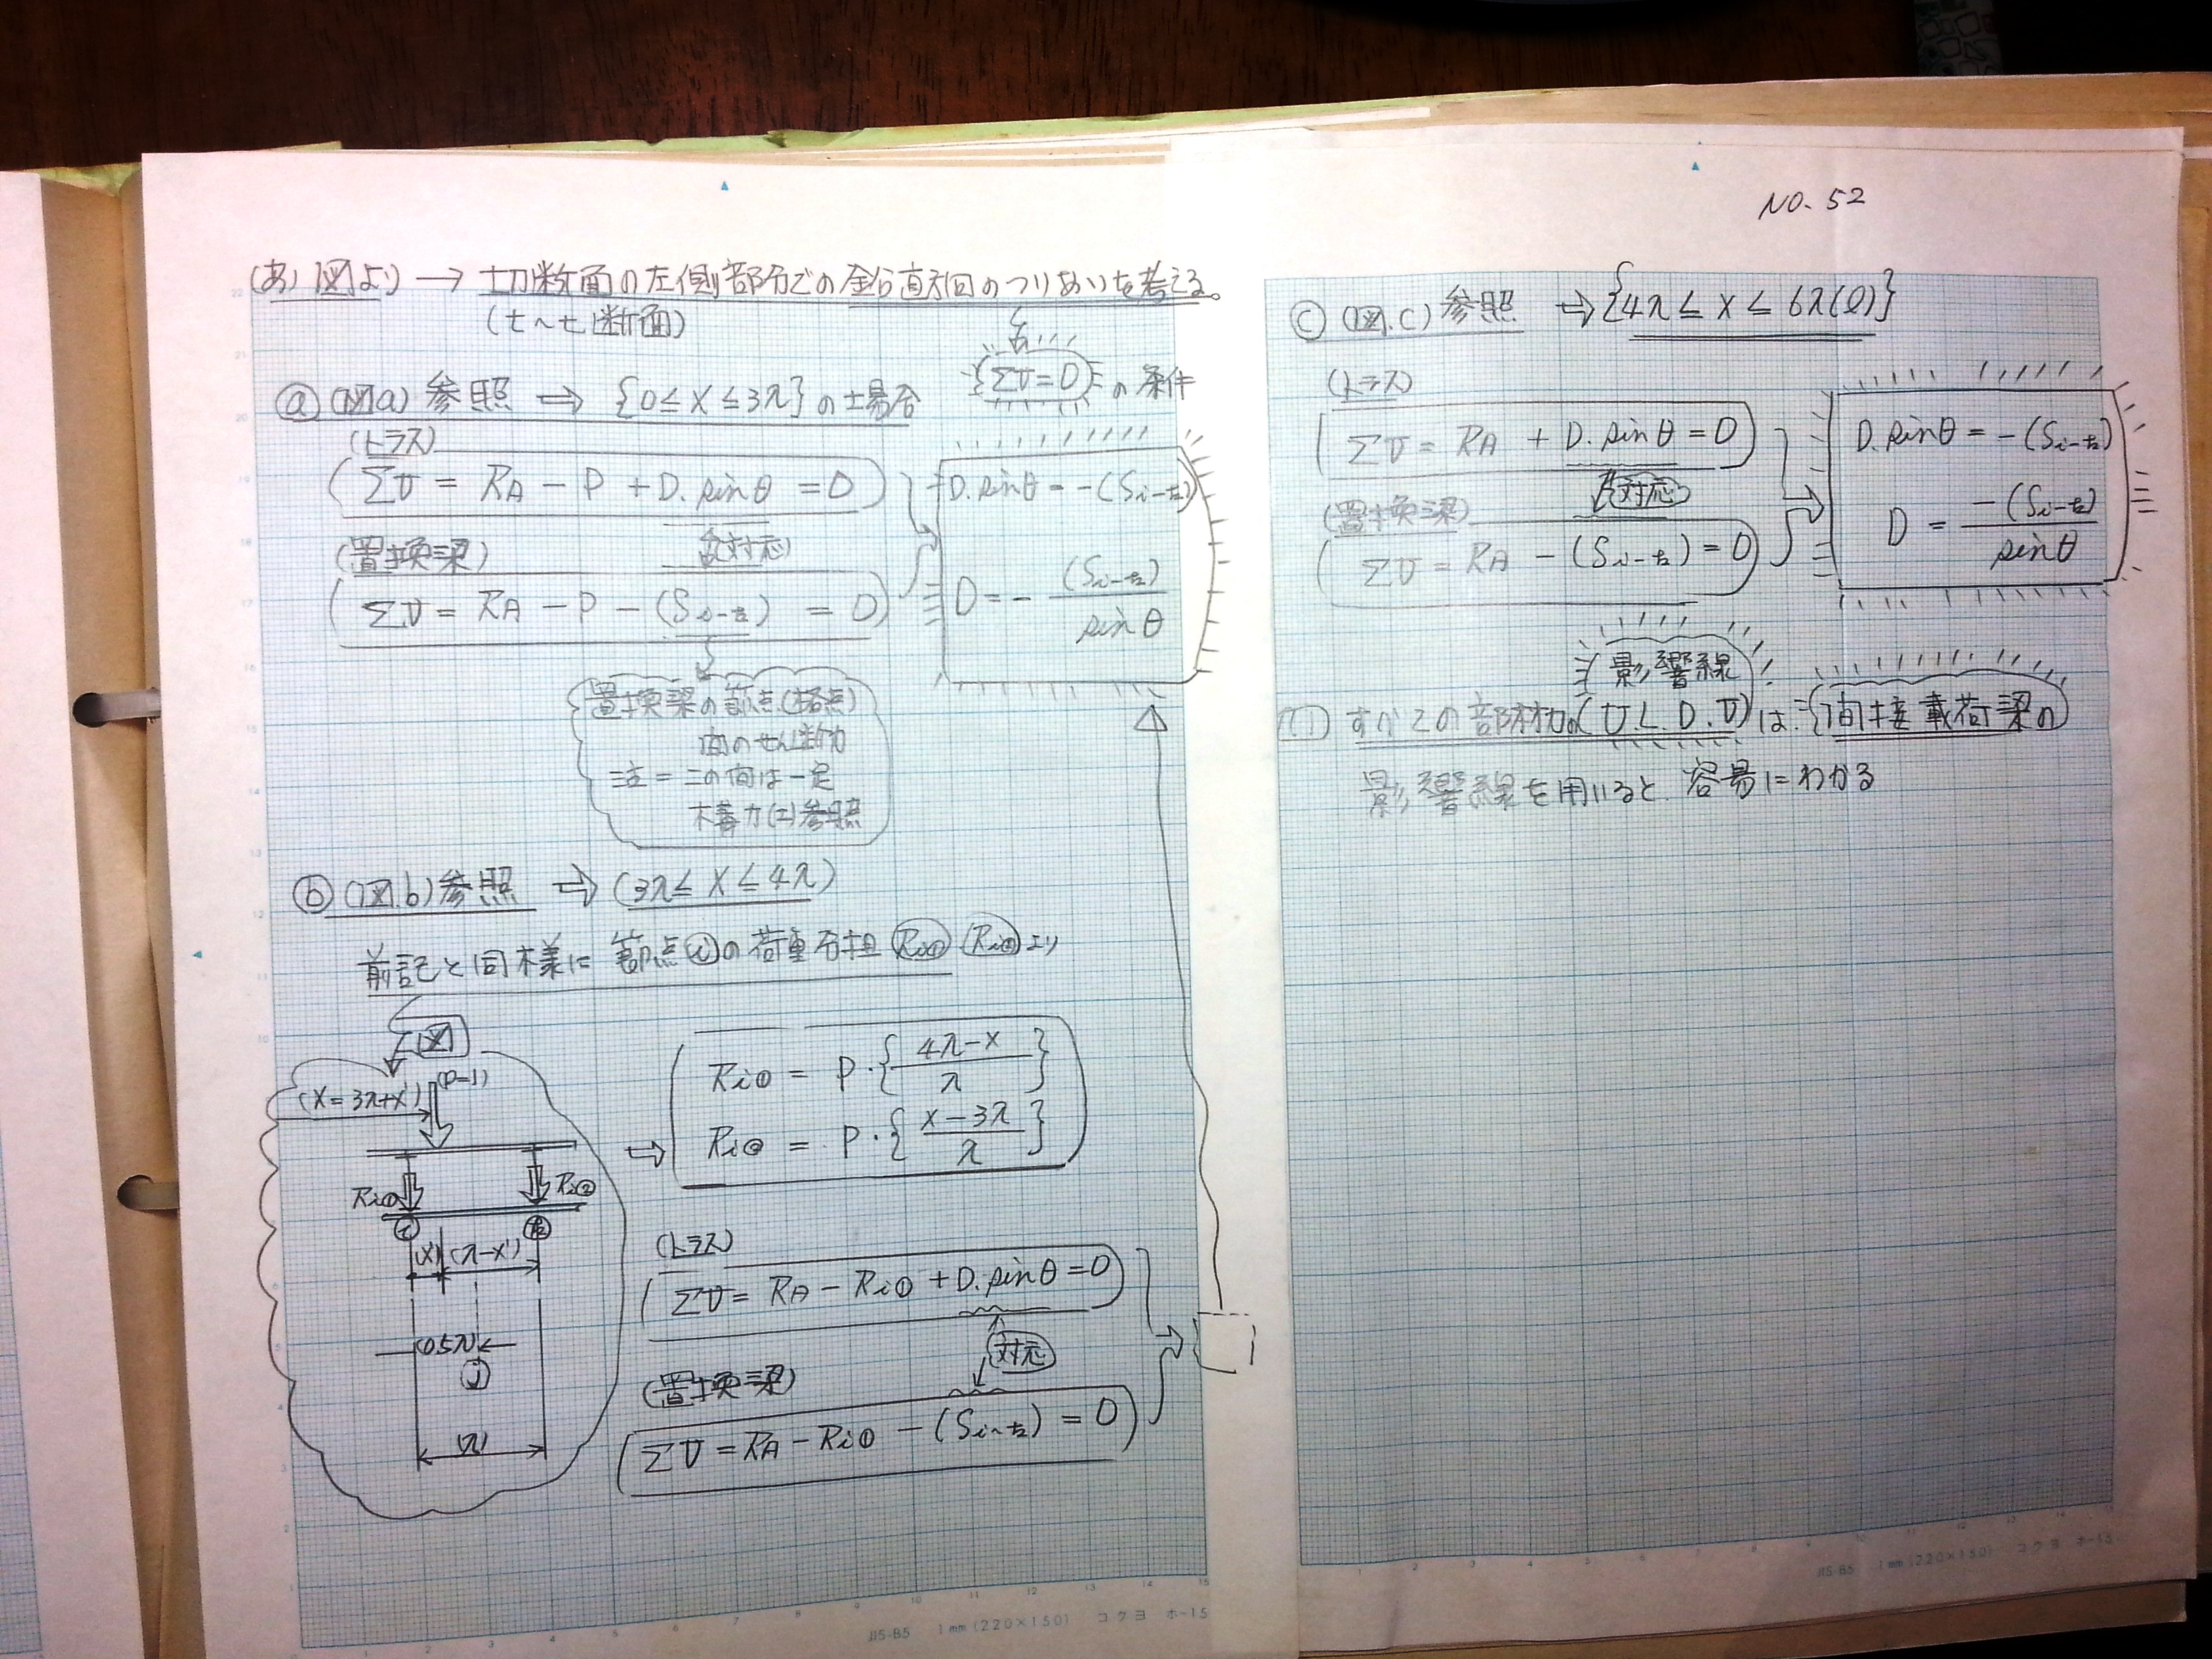 (あ) 図より → 切断面の左側部分での鉛直方向のつりあいを考える。
(t~t断面)
{ΣV=0} の条件
ⓐ (図a) 参照 ⇒ {0≤x≤3λ}の場合
(トラス)
ΣV = RA - P + D.sinθ = 0
(対応)
(置換梁)
ΣV = RA - P - (Si-k) = 0
D.sinθ = -(Si-k)
D = - (Si-k) / sinθ
置換梁の節点(格点)
間のせん断力
注=この間は一定
構力(エ)参照
ⓑ (図.b) 参照 ⇒ (3λ≤x≤4λ)
前記と同様に 節点ⓘの荷重分担 Ri① Ri② より
図
(x=3λ+x')
(P=1)
Ri①
Ri②
ⓘ ⓚ
(x') (λ-x')
(0.5λ)
ⓙ
(λ)
Ri① = P・{ (4λ-x) / λ }
Ri② = P・{ (x-3λ) / λ }
(トラス)
ΣV = RA - Ri① + D.sinθ = 0
(対応)
(置換梁)
ΣV = RA - Ri① - (Si~k) = 0
NO. 52
ⓒ (図.c) 参照 ⇒ {4λ≤x≤6λ(l)}
(トラス)
ΣV = RA + D.sinθ = 0
(対応)
(置換梁)
ΣV = RA - (Si-k) = 0
D.sinθ = -(Si-k)
D = -(Si-k) / sinθ
影響線
すべての部材力の(U.L.D.V)は 間接載荷梁の
影響線を用いると 容易にわかる
JIS-B5 1mm (220×150) コクヨ ホ-15
JIS-B5 1mm (220×150) コクヨ ホ-15